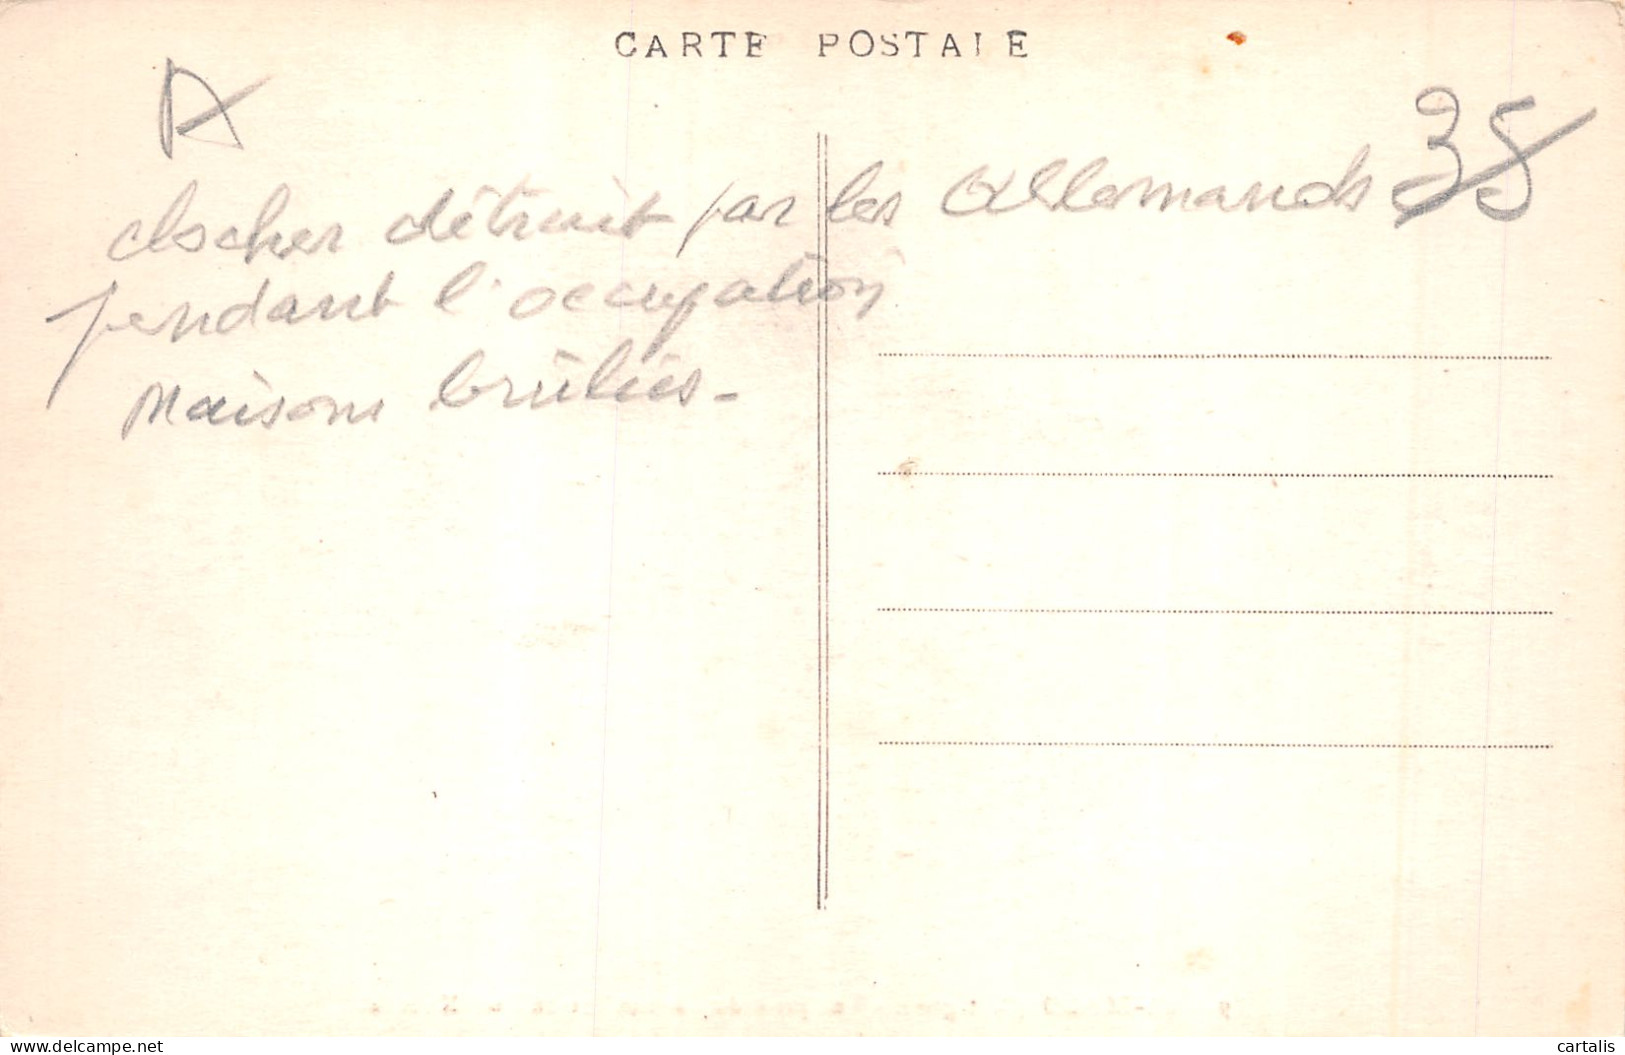 CARTE POSTALE
A
35
clocher détruit par les Allemands
pendant l'occupation
Maisons brûlées -
www.delcampe.net
cartalis